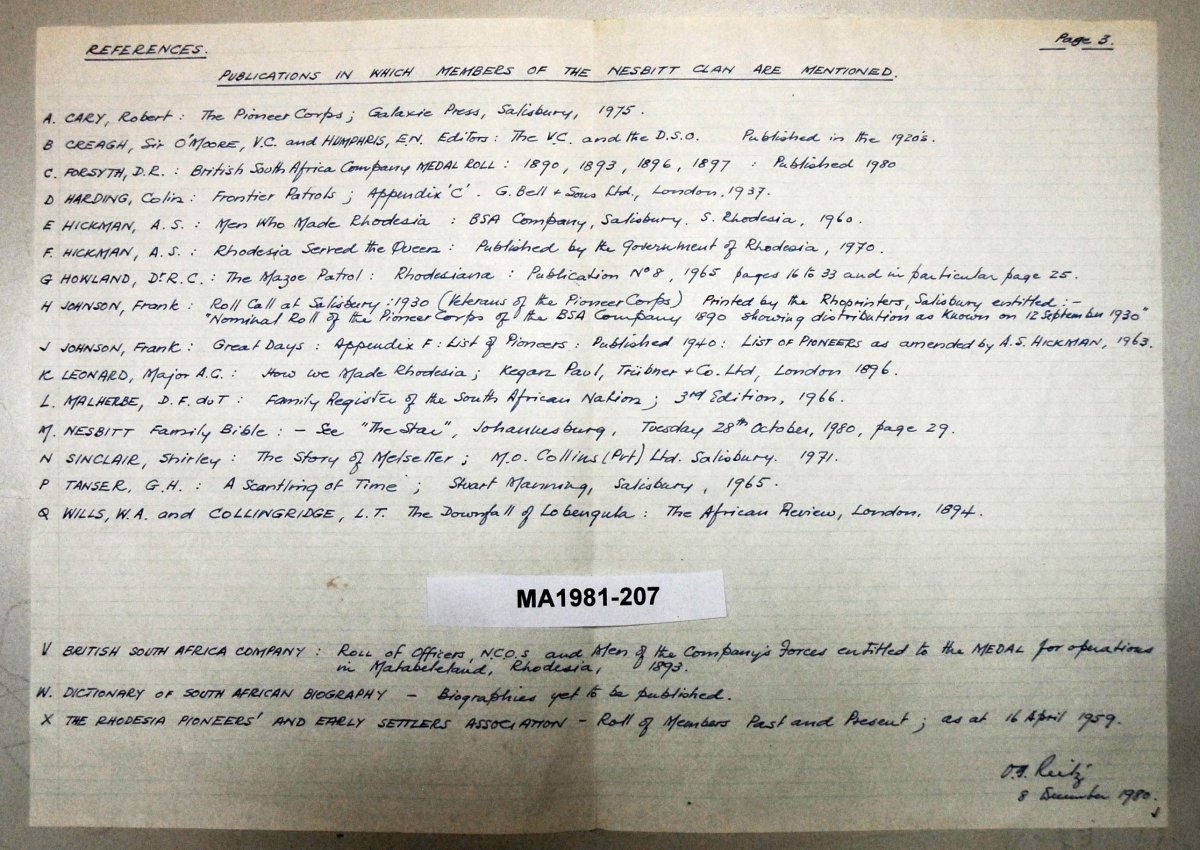 REFERENCES.
Page 3.
PUBLICATIONS IN WHICH MEMBERS OF THE NESBITT CLAN ARE MENTIONED.
A. CARY, Robert : The Pioneer Corps; Galaxie Press, Salisbury, 1975.
B CREAGH, Sir O'MOORE, V.C. and HUMPHRIS, E.N. Editors: The V.C. and the D.S.O. Published in the 1920's.
C. FORSYTH, D.R. : British South Africa Company MEDAL ROLL : 1890, 1893, 1896, 1897 : Published 1980
D HARDING, Colin : Frontier Patrols ; Appendix 'C'. G. Bell & Sons Ltd., London. 1937.
E HICKMAN, A.S. : Men Who Made Rhodesia : BSA Company, Salisbury. S. Rhodesia, 1960.
F. HICKMAN, A.S. : Rhodesia Served the Queen : Published by the Government of Rhodesia, 1970.
G HOWLAND, Dr R.C. : The Mazoe Patrol : Rhodesiana : Publication No 8, 1965 pages 16 to 33 and in particular page 25.
H JOHNSON, Frank : Roll Call at Salisbury : 1930 (Veterans of the Pioneer Corps) Printed by the Rhoprinters, Salisbury entitled :-
"Nominal Roll of the Pioneer Corps of the BSA Company 1890 showing distribution as known on 12 September 1930"
J JOHNSON, Frank : Great Days : Appendix F : List of Pioneers : Published 1940 : LIST OF PIONEERS as amended by A.S. HICKMAN, 1963.
K LEONARD, Major A.G. : How we Made Rhodesia ; Kegan Paul, Trübner & Co. Ltd, London 1896.
L. MALHERBE, D.F. du T : Family Register of the South African Nation ; 3rd Edition, 1966.
M. NESBITT Family Bible : - See "The Star", Johannesburg, Tuesday 28th October, 1980, page 29.
N SINCLAIR, Shirley : The Story of Melsetter ; M.O. Collins (Pvt) Ltd. Salisbury. 1971.
P TANSER, G.H. : A Scantling of Time ; Stuart Manning, Salisbury, 1965.
Q WILLS, W.A. and COLLINGRIDGE, L.T. The Downfall of Lobengula : The African Review, London, 1894.
MA1981-207
V BRITISH SOUTH AFRICA COMPANY : Roll of Officers, N.C.O.s and Men of the Company's Forces entitled to the MEDAL for operations
in Matabeleland, Rhodesia, 1893.
W. DICTIONARY OF SOUTH AFRICAN BIOGRAPHY - Biographies yet to be published.
X THE RHODESIA PIONEERS' AND EARLY SETTLERS ASSOCIATION - Roll of Members Past and Present ; as at 16 April 1959.
Reitz
8 December 1980.